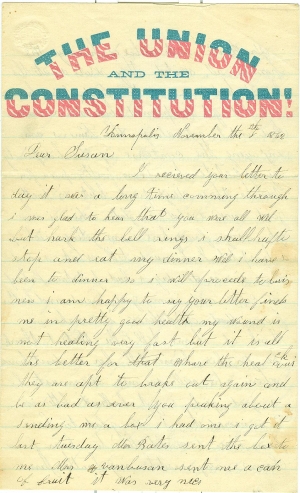 THE UNION
AND THE
CONSTITUTION!
Annapolis November the
Dear
I received your letter to
day it was a long time comming through
i was glad to hear that you were all well
but hark the bell rings i shall
stop and eat my dinner Well i have
been to dinner so i will proceeds to buis
ness i am happy to say your letter finds
me in pretty good health my wound is
not healing very fast but it is all
the better for that Where the heal quick
they are apt to brake out again and
be as bad as ever You speaking about a
sending me a box i had one i got it
last tuesday Mr Bates sent the box to
me Mrs sent me a can
of fruit it was very nice